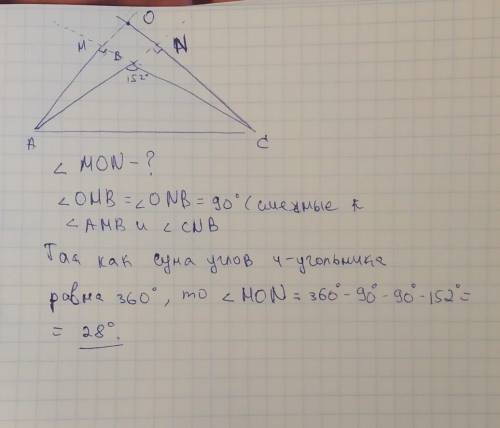 O
M
B
N
152°
A
C
∠ MON - ?
∠OMB = ∠ONB = 90° (смежные к
∠AMB и ∠CNB
Так как сума углов 4-угольника
равна 360°, то ∠MON = 360° - 90° - 90° - 152° =
= 28°.